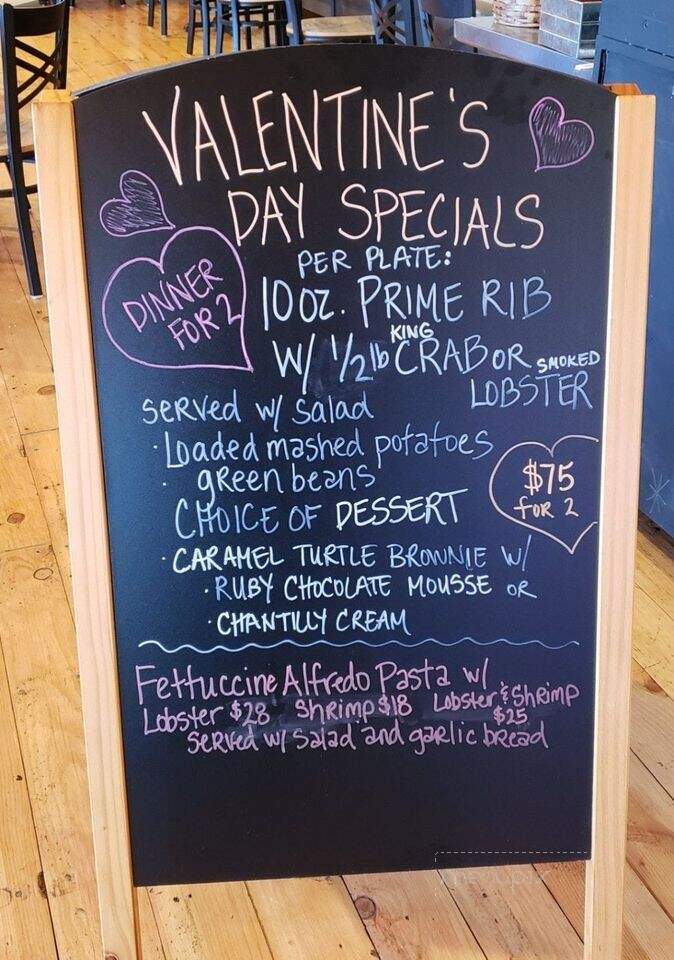 VALENTINE'S
DAY SPECIALS
DINNER
FOR 2
PER PLATE:
10 OZ. PRIME RIB
W/ 1/2 lb KING CRAB OR SMOKED
LOBSTER
Served w/ Salad
· Loaded mashed potatoes
· green beans
$75
for 2
CHOICE OF DESSERT
· CARAMEL TURTLE BROWNIE W/
· RUBY CHOCOLATE MOUSSE OR
· CHANTILLY CREAM
Fettuccine Alfredo Pasta w/
Lobster $28 Shrimp $18 Lobster & Shrimp
$25
Served w/ Salad and garlic bread